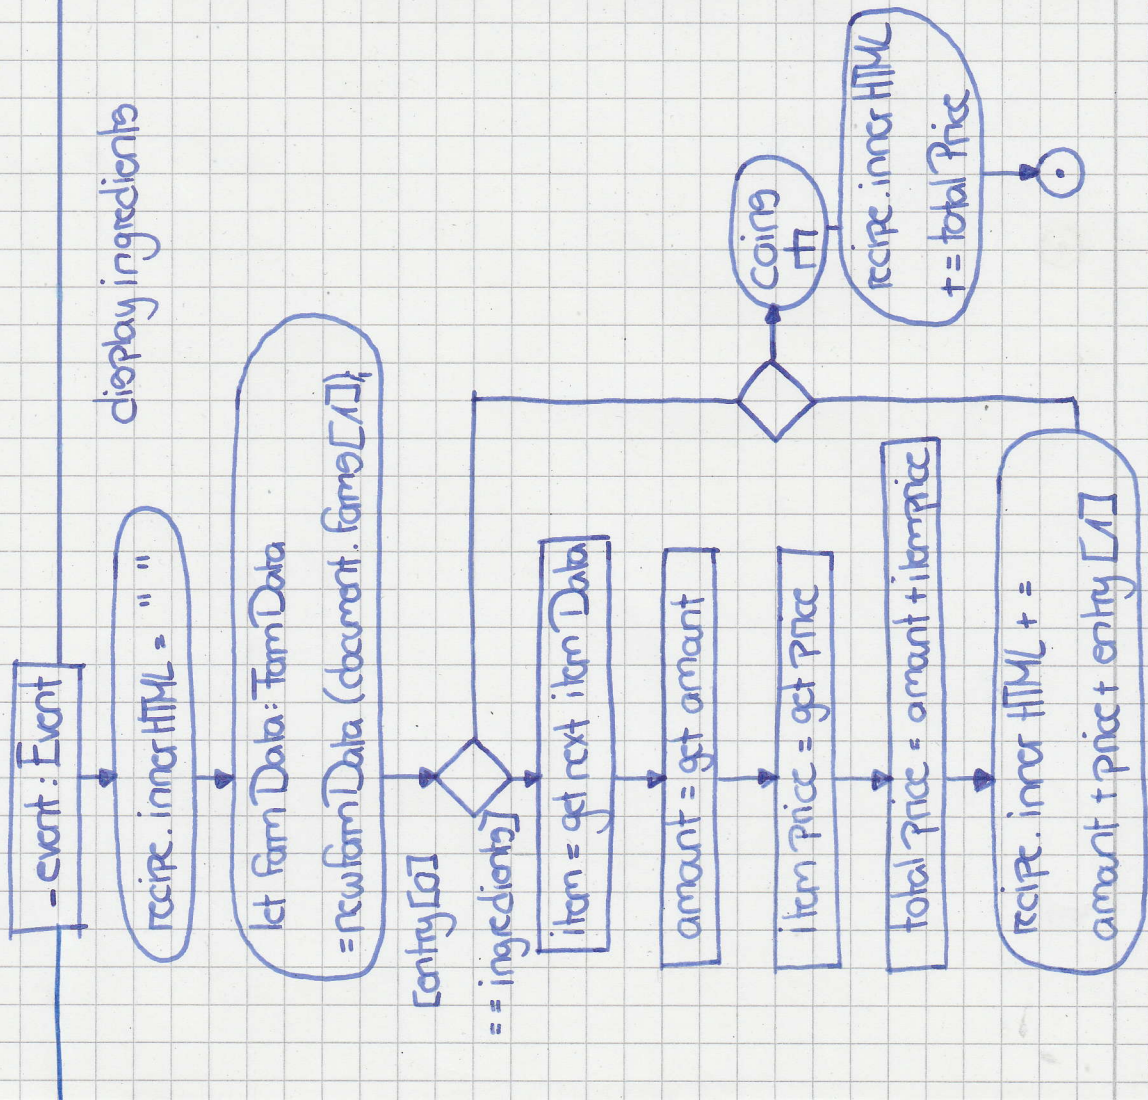 display ingredients
_event: Event
recipe.innerHTML = " "
let FormData: FormData
= new FormData (document.forms[1]);
[entry[0]
== ingredients]
item = get next item Data
amount = get amount
item price = get price
total price = amount + item price
recipe.inner HTML + =
amount + price + entry [1]
recipe.inner HTML
+ = total Price